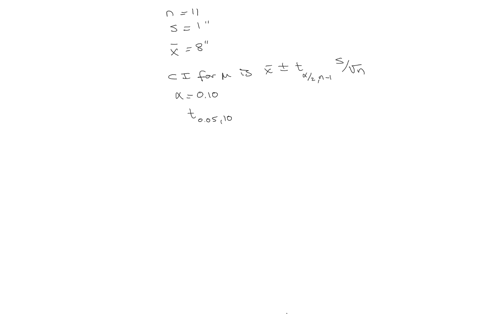 n = 11
s = 1"
x̄ = 8"
CI for μ is x̄ ± t α/2, n-1 s/√n
α = 0.10
t 0.05, 10